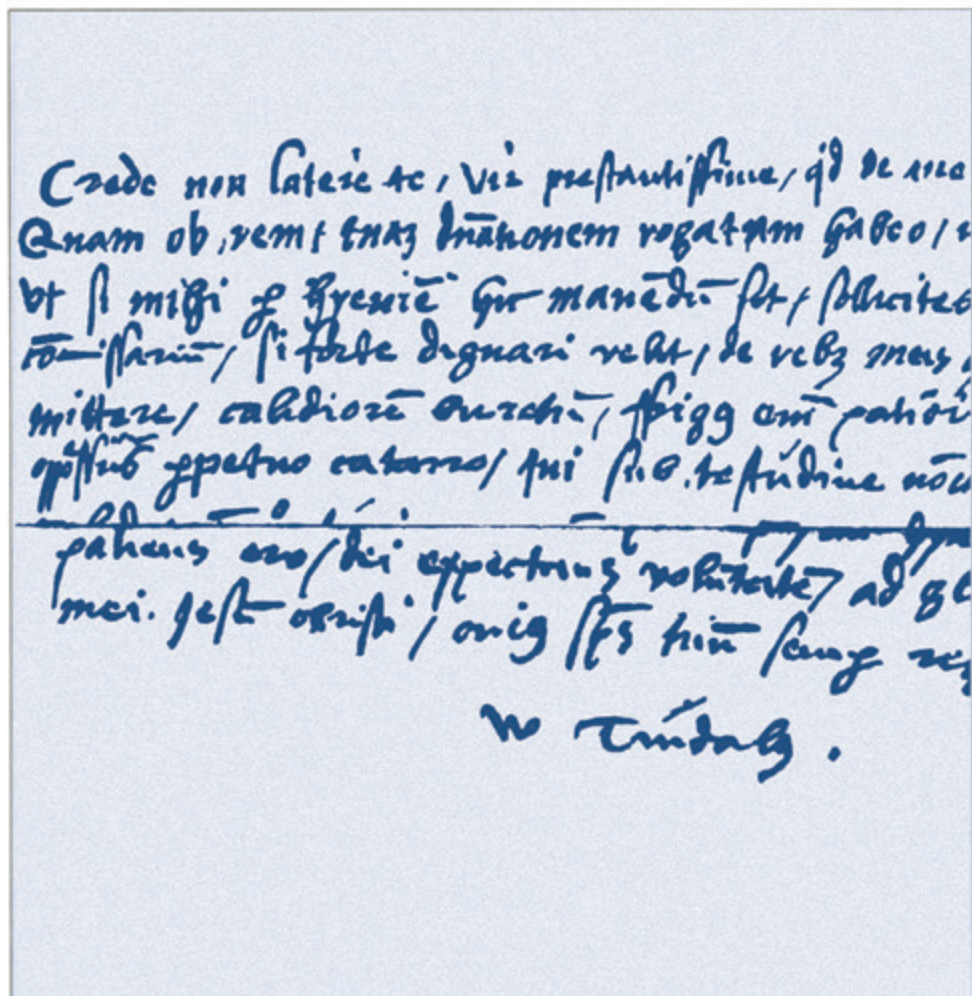 Crede non latere te, vir prestantissime, qd de me
Quam ob rem, tuaz dnātionem rogatam habeo,
vt si mihi ꝑ hyemē hic manēdū sit, sollicites
cōmissariū, si forte dignari velit, de rebꝫ meis
mittere, calidiorē birethū, frigꝰ em patior
oppssus ꝑpetuo catarro, qui sub testudine nō
patiens ero, dei expectans volūtatē, ad gl
mei. Jesu christi, cuiꝰ sps tuū semꝑ
W Tindalꝰ.